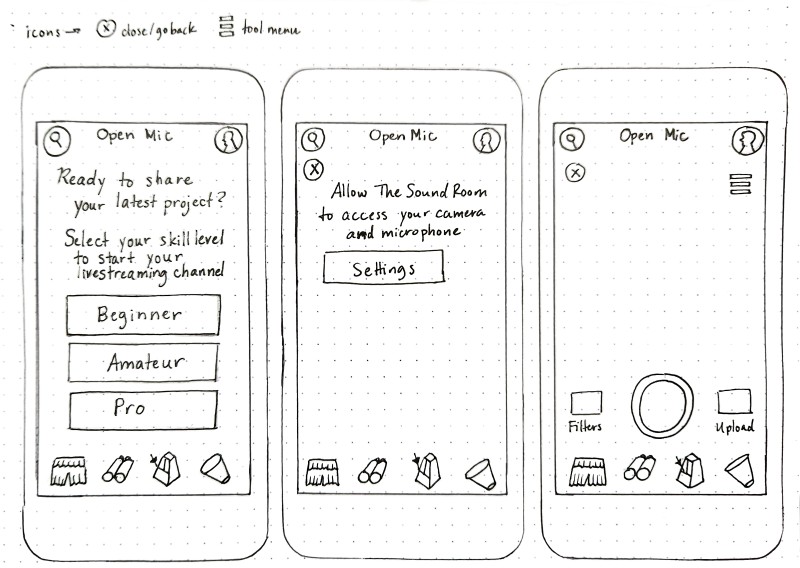 icons → ⓧ close/go back tool menu
Open Mic
Ready to share
your latest project?
Select your skill level
to start your
livestreaming channel
Beginner
Amateur
Pro
Open Mic
X
Allow The Sound Room
to access your camera
and microphone
Settings
Open Mic
X
Filters
Upload